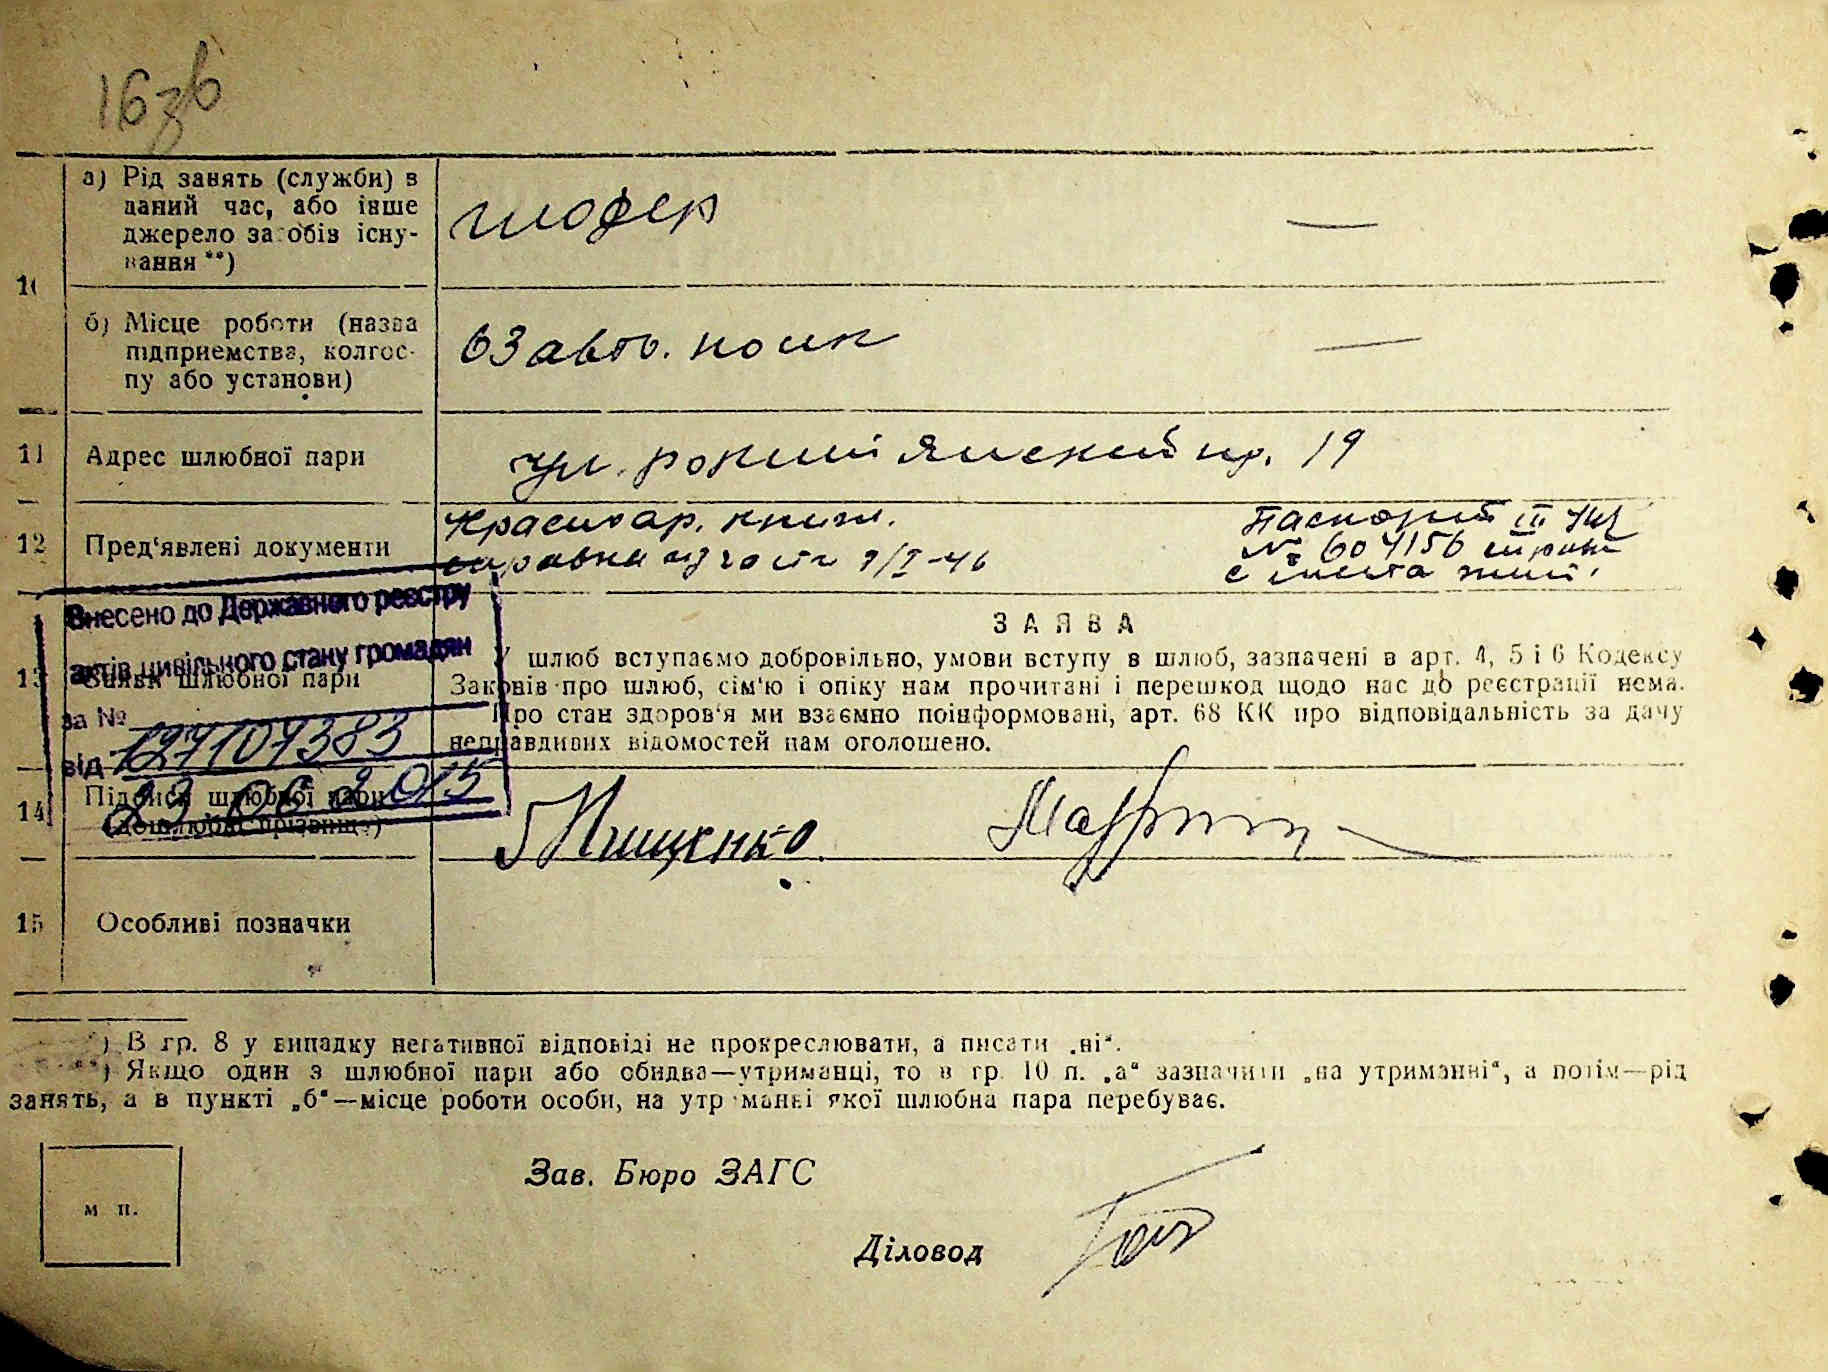 16зв
10
а) Рід занять (служби) в
даний час, або інше
джерело засобів існу-
вання **)
шофер —
б) Місце роботи (назва
підприємства, колгос-
пу або установи)
63 авто. полк —
11 Адрес шлюбної пари
ул. 19
12 Пред'явлені документи
Красноар. книж.
справка из части 9/I-46
Паспорт III
№ 604156
с места жит.
Внесено до Державного реєстру
актів цивільного стану громадян
за № 127107383
від 23 06 2015
ЗАЯВА
13 Заява шлюбної пари
У шлюб вступаємо добровільно, умови вступу в шлюб, зазначені в арт. 4, 5 і 6 Кодексу
Законів про шлюб, сім'ю і опіку нам прочитані і перешкод щодо нас до реєстрації нема.
Про стан здоров'я ми взаємно поінформовані, арт. 68 КК про відповідальність за дачу
неправдивих відомостей нам оголошено.
14 Підписи шлюбної пари
(дошлюбні прізвища)
Мищенко
15 Особливі позначки
*) В гр. 8 у випадку негативної відповіді не прокреслювати, а писати „ні".
**) Якщо один з шлюбної пари або обидва—утриманці, то в гр. 10 п. „а" зазначити „на утриманні", а потім—рід
занять, а в пункті „б"—місце роботи особи, на утриманні якої шлюбна пара перебуває.
м п.
Зав. Бюро ЗАГС
Діловод